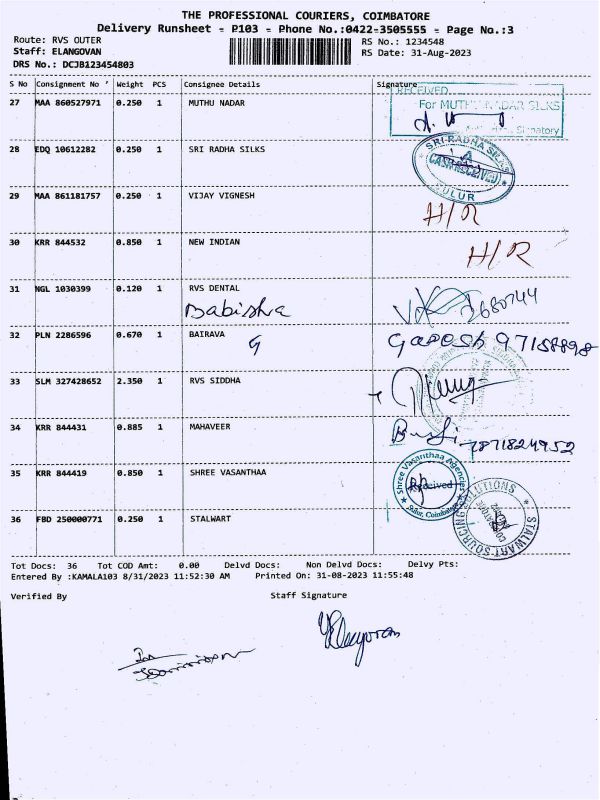 THE PROFESSIONAL COURIERS, COIMBATORE
Delivery Runsheet - P103 - Phone No.:0422-3505555 - Page No.:3
Route: RVS OUTER RS No.: 1234548
Staff: ELANGOVAN RS Date: 31-Aug-2023
DRS No.: DCJB123454803
S No Consignment No Weight PCS Consignee Details Signature
RECEIVED
27 MAA 860527971 0.250 1 MUTHU NADAR For MUTHU NADAR SILKS
Signatory
28 EDQ 10612282 0.250 1 SRI RADHA SILKS SRI RADHA SILKS
CASH RECEIVED
SULUR
29 MAA 861181757 0.250 1 VIJAY VIGNESH H/R
30 KRR 844532 0.850 1 NEW INDIAN H/R
31 NGL 1030399 0.120 1 RVS DENTAL
Babisha
32 PLN 2286596 0.670 1 BAIRAVA Ganesh 97158898
33 SLM 327428652 2.350 1 RVS SIDDHA
34 KRR 844431 0.885 1 MAHAVEER 7871824952
35 KRR 844419 0.850 1 SHREE VASANTHAA Shree Vasanthaa Agencies
Received
Sulur, Coimbatore
36 FBD 250000771 0.250 1 STALWART STALWART SOURCING SOLUTIONS
Tot Docs: 36 Tot COD Amt: 0.00 Delvd Docs: Non Delvd Docs: Delvy Pts:
Entered By :KAMALA103 8/31/2023 11:52:30 AM Printed On: 31-08-2023 11:55:48
Verified By Staff Signature